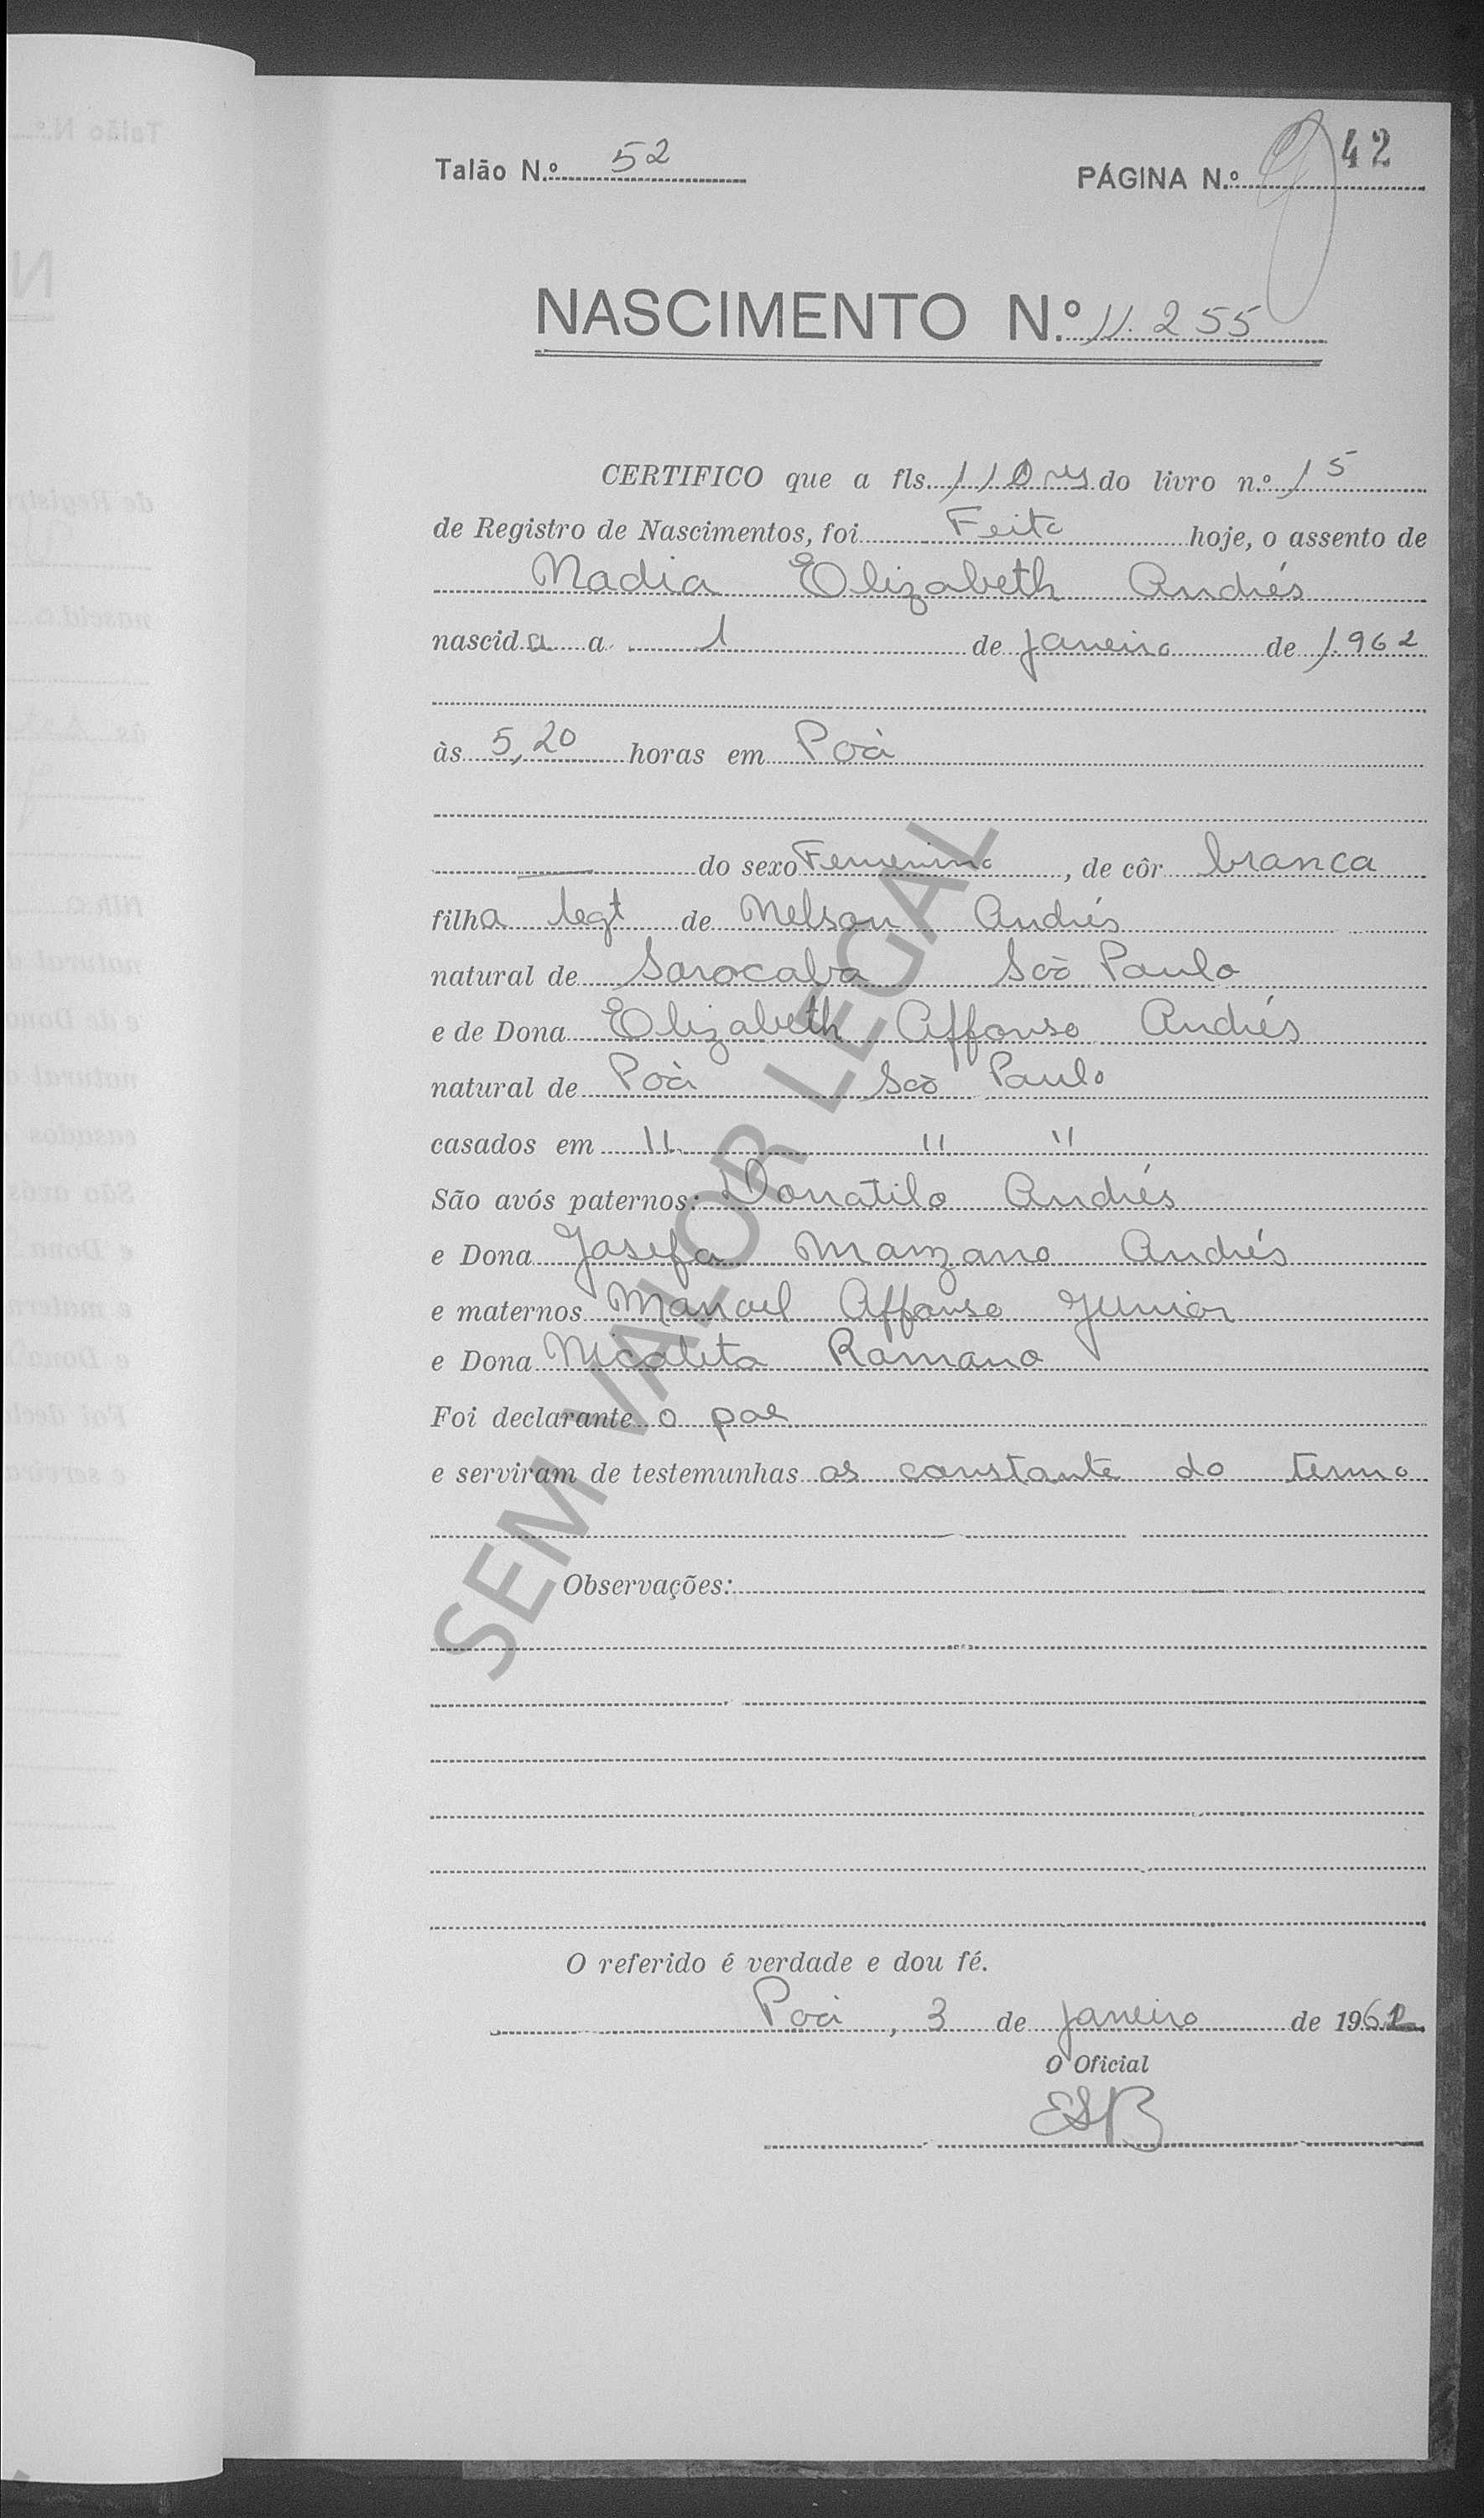 Talão N.º 52 PÁGINA N.º 42
NASCIMENTO N.º 11.255
CERTIFICO que a fls. 110 vs do livro n.º 15
de Registro de Nascimentos, foi Feito hoje, o assento de
Nadia Elizabeth Andrés
nascida a 1 de janeiro de 1.962
às 5,20 horas em Poá
do sexo Femenino, de côr branca
filha legt de Nelson Andrés
natural de Sorocaba São Paulo
e de Dona Elizabeth Affonso Andrés
natural de Poá São Paulo
casados em " " "
São avós paternos: Donatilo Andrés
e Dona Josefa Manzano Andrés
e maternos Manoel Affonso Junior
e Dona Nicoleta Romano
Foi declarante o pae
e serviram de testemunhas as constante do termo
Observações:
O referido é verdade e dou fé.
Poá, 3 de janeiro de 1962
O Oficial
ESB
SEM VALOR LEGAL